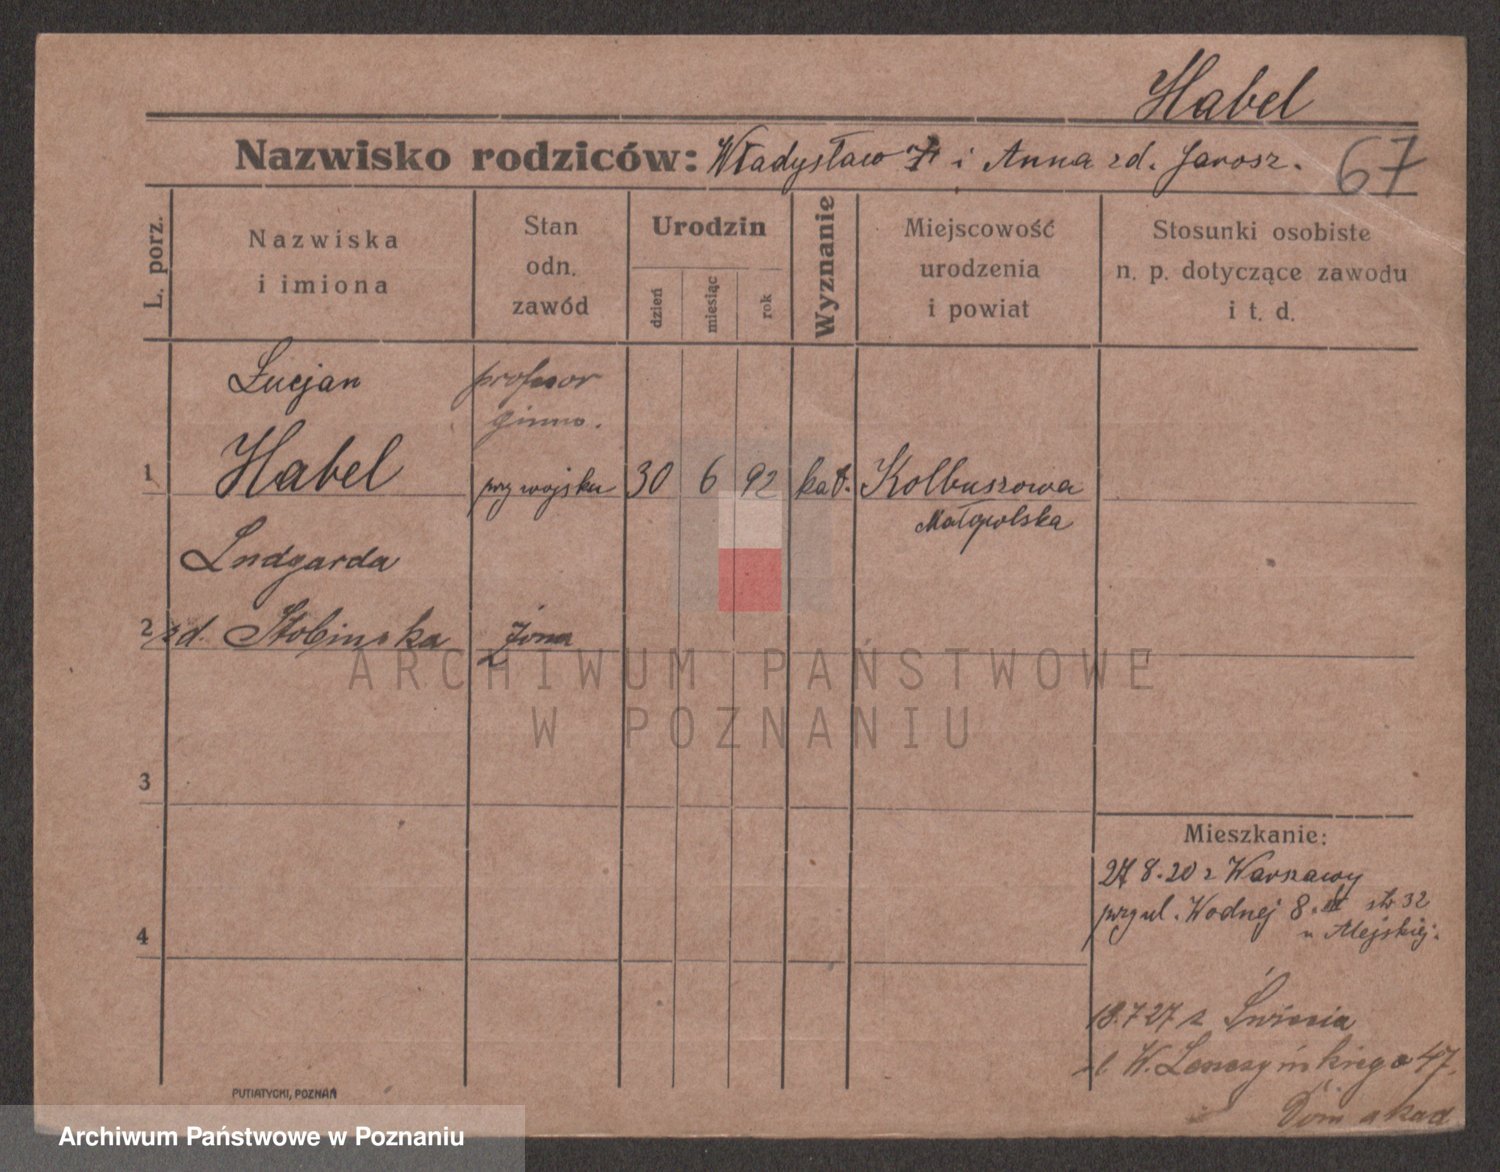 Habel
Nazwisko rodziców: Władysław i Anna zd. Jarosz.
67
L. porz.
Nazwiska
i imiona
Stan
odn.
zawód
Urodzin
dzień
miesiąc
rok
Wyznanie
Miejscowość
urodzenia
i powiat
Stosunki osobiste
n. p. dotyczące zawodu
i t. d.
Łucjan
profesor
gimn.
1 Habel przy wojsku 30 6 92 kat. Kolbuszowa
Małopolska
Ludgarda
2 zd. żona
3
4
Mieszkanie:
8.20 z Warszawy
przy ul. Wodnej 8. III
u Alejskiej.
18.7 27 z Świecia
W. Leszczyńskiego 47
Dom akad
PUTIATYCKI, POZNAŃ
ARCHIWUM PAŃSTWOWE
W POZNANIU
Archiwum Państwowe w Poznaniu